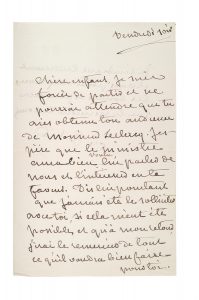 Vendredi soir
chère enfant, je suis
forcée de partir et ne
pourrai attendre que tu
aies obtenu ton audience
de Monsieur Leclercq. J'es-
père que le ministre
aura bien voulu lui parler de
nous et l'intéresser en ta
faveur. Dis lui pourtant
que j'aurais été le solliciter
avec toi, si cela m'eut été
possible, et qu'à mon retour
j'irai le remercier de tout
ce qu'il voudra bien faire
pour toi.